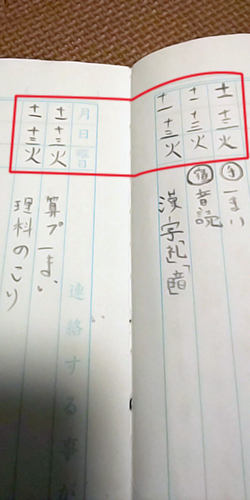 土 十三 火 手 一まい
十一 十三 火 宿 音読
十一 十三 火 漢字
月 日 曜日 連絡する事が
十一 十三 火 算プ一まい
十一 十三 火 理科のこり